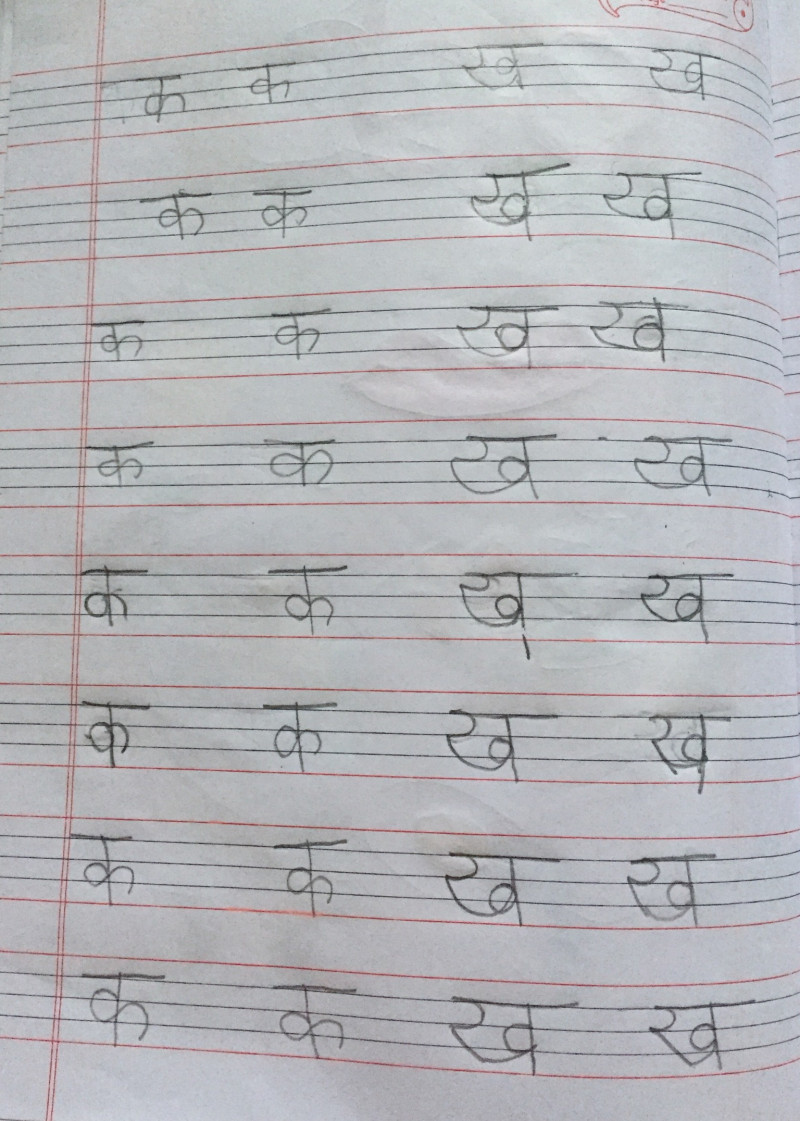 क क ख ख
क क ख ख
क क ख ख
क क ख ख
क क ख ख
क क ख ख
क क ख ख
क क ख ख